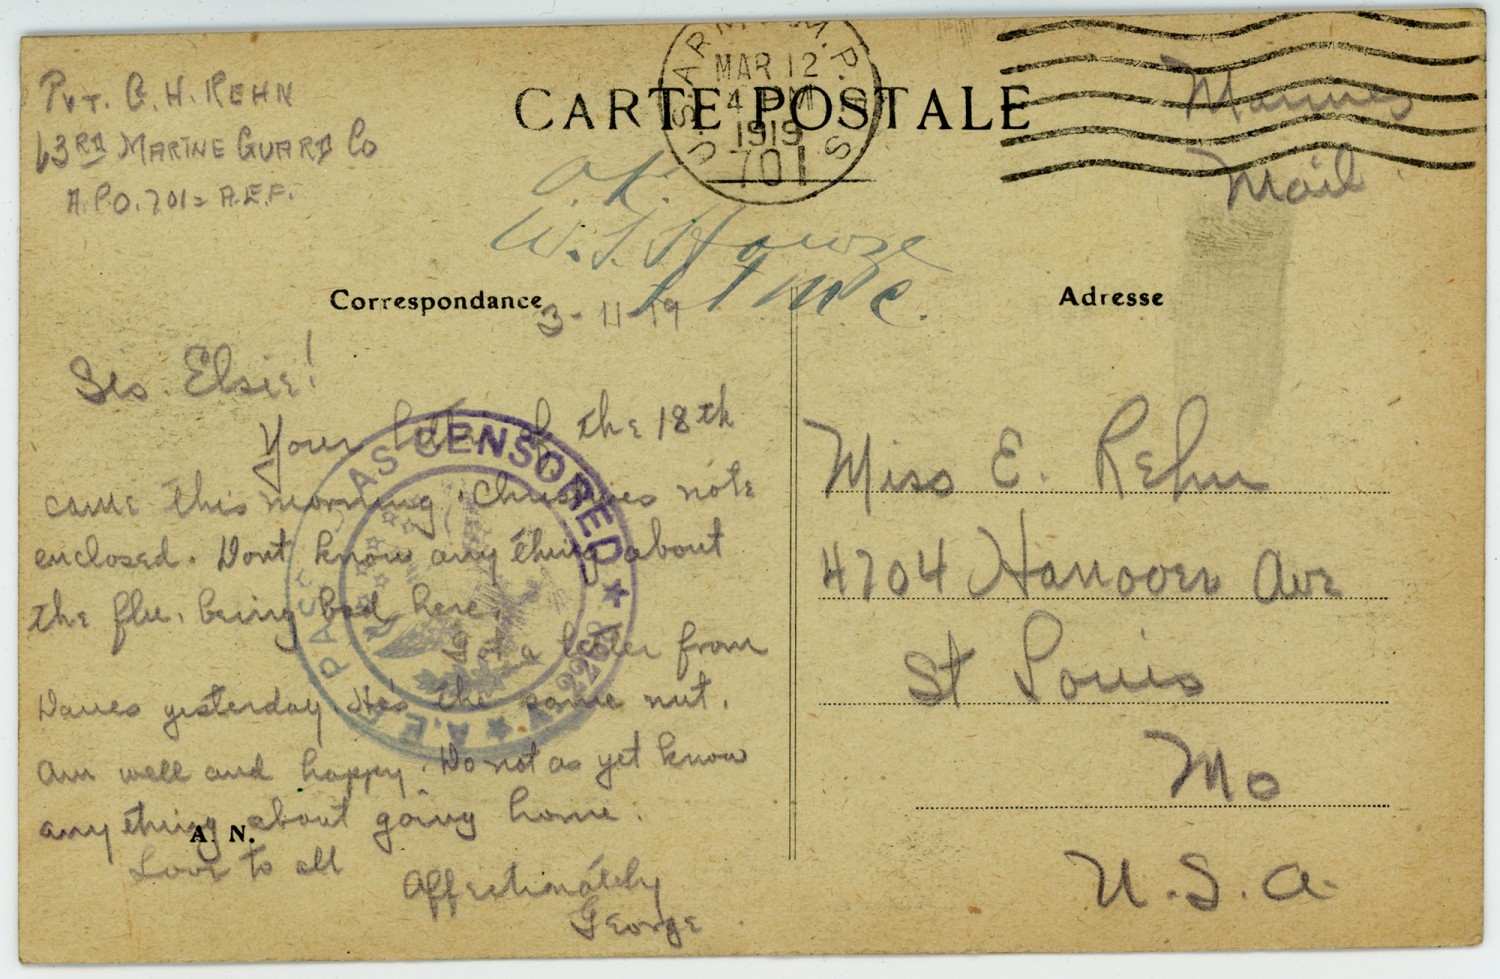 Pvt. G. H. REHN
63RD MARINE GUARD Co
A.P.O. 701 = A.E.F.
U.S. ARMY M.P.E.S.
MAR 12
4 PM
1919
701
CARTE POSTALE
Marines
Mail.
O.K.
W. S. Howze
Lt M C.
Correspondance
3-11-19
Adresse
Sis. Elsie!
Your letter of the 18th
came this morning, Christmas note
enclosed. Dont know any thing about
the flu, being bad here.
Got a letter from
yesterday He's the same nut.
Am well and happy. Do not as yet know
any thing about going home.
A. N.
Love to all
Affectinately
George
PASSED AS CENSORED
A 2268
A.E.F.
Miss E. Rehn
4704 Hanover Ave
St Louis
Mo
U.S.A.